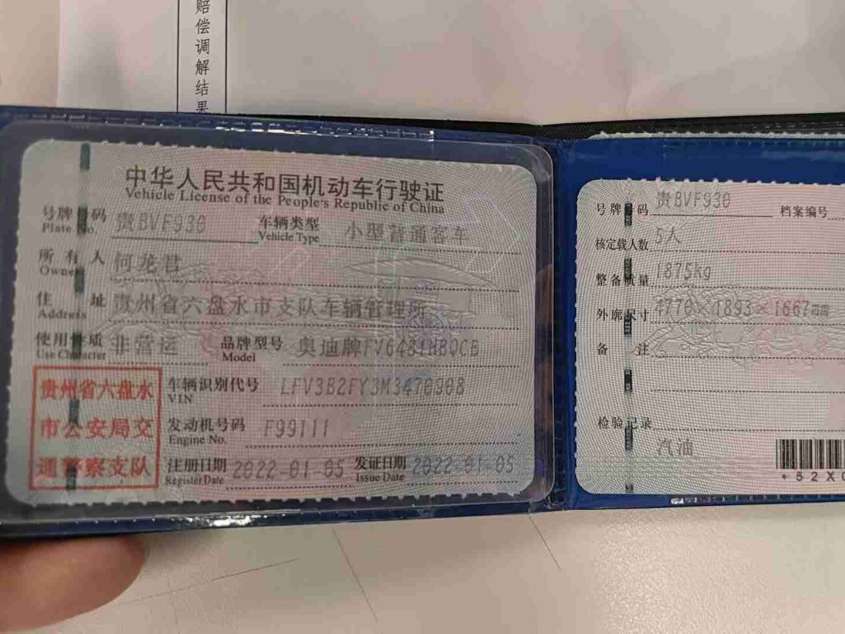 赔偿调解结果
中华人民共和国机动车行驶证
Vehicle License of the People's Republic of China
号牌号码 贵BVF930 车辆类型 小型普通客车
Plate No. Vehicle Type
所有人 何龙君
Owner
住址 贵州省六盘水市支队车辆管理所
Address
使用性质 非营运 品牌型号 奥迪牌FV6481HBQCB
Use Character Model
贵州省六盘水
市公安局交
通警察支队
车辆识别代号 LFV3B2FY3M3470908
VIN
发动机号码 F99111
Engine No.
注册日期 2022-01-05 发证日期 2022-01-05
Register Date Issue Date
号牌号码 贵BVF930 档案编号
核定载人数 5人
整备质量 1875kg
外廓尺寸 4770×1893×1667mm
备注
检验记录
汽油